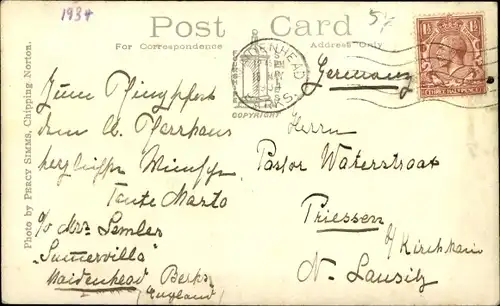 1934
Post Card
57
For Correspondence
Address Only
MAIDENHEAD
BERKS.
COPYRIGHT
THREE HALFPENCE
Photo by PERCY SIMMS, Chipping Norton.
Germany
Zum Pfingstfest
dem lb. Pfarrhaus
herzlichste Wünsche
Tante Marta
c/o Mrs Semler
"Sumerville"
Maidenhead Berks
(England)
Herrn
Pastor Waterstraat
Priessen
b/ Kirchhain
N. Lausitz